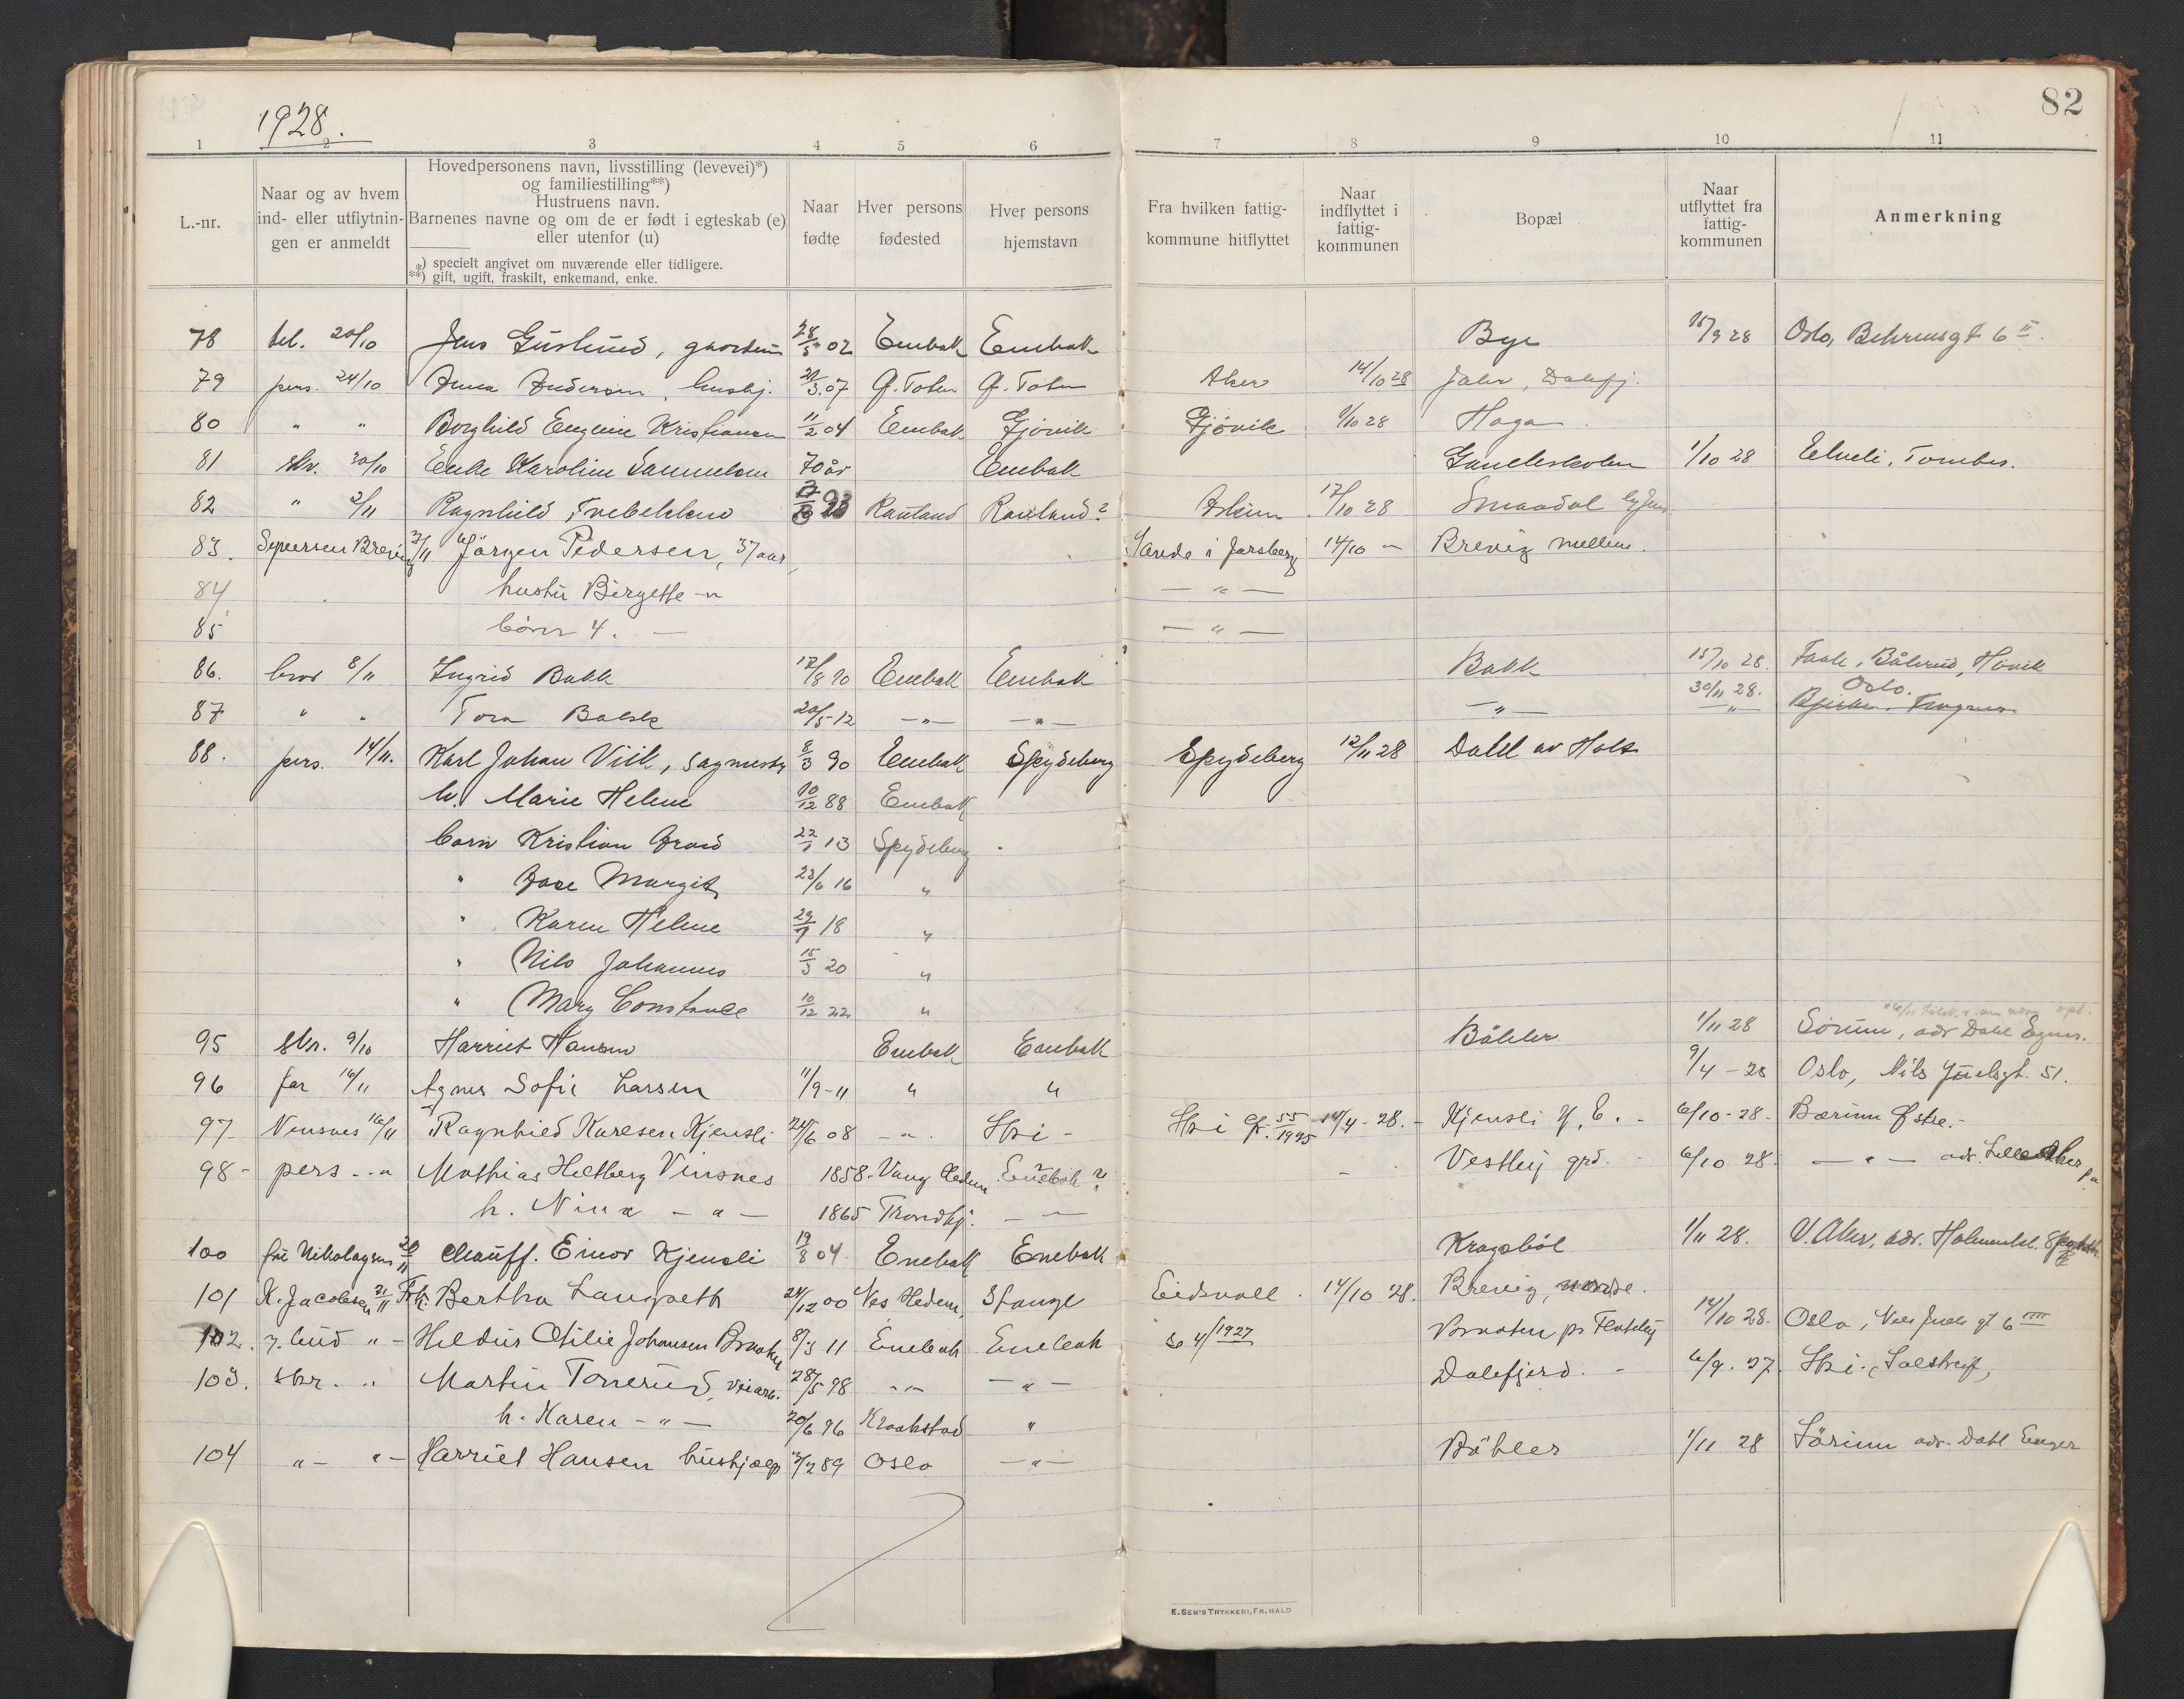 82
1928.
1 2 3 4 5 6 7 8 9 10 11
L.-nr.
Naar og av hvem
ind- eller utflytnin-
gen er anmeldt
Hovedpersonens navn, livsstilling (levevei)*)
og familiestilling**)
Hustruens navn.
Barnenes navne og om de er født i egteskab (e)
eller utenfor (u)
*) specielt angivet om nuværende eller tidligere.
**) gift, ugift, fraskilt, enkemand, enke.
Naar
fødte
Hver persons
fødested
Hver persons
hjemstavn
Fra hvilken fattig-
kommune hitflyttet
Naar
indflyttet i
fattig-
kommunen
Bopæl
Naar
utflyttet fra
fattig-
kommunen
Anmerkning
78 tel. 20/10 Jens Guslund, 28/5 02 Enebak Enebak Bye 15/9 28 Oslo, Behrensgt 6 II.
79 pers. 24/10 Anna Andersen, hushj. 20/3 07 Ø. Toten Ø. Toten Aker 14/10 28 Jahr, Dalefj.
80 " " Borghild Eugenie Kristiansen 11/2 04 Enebak Gjövik Gjövik 1/10 28 Haga
81 skr. 30/10 Enke Karoline Samuelsen 70 år Enebak 1/10 28 Elveli, Tomter.
82 " 2/11 Ragnhild 93 Rauland Rauland? Askim 17/10 28 Smaadal
83. Brevig 7/11 Jörgen Pedersen, 37 aar i Jarsberg 14/10 - Brevig mellem.
84 hustru Birgette -"- - " -
85 börn 4. - - " -
86. bror 8/11 Ingrid Bakk 17/8 90 Enebak Enebak Bakk 15/10 28. Hövik
87 " " Tora Bakk 20/5-12 -"- -"- -"- 30/11 28. Oslo.
88. pers. 14/11. Karl Johan Viik, sagmester 8/3 90 Enebak Spydeberg Spydeberg 12/11 28 Dahl av Holt
h. Marie Helene 10/12 88 Enebak
barn Kristian 22/1 13 Spydeberg
" Margit 23/6 16 "
" Karen Helene 29/7 18 "
" Nils Johannes 15/3 20 "
" Mary Constance 10/12 22 "
95 skr. 9/10 Harriet Hansen Enebak Enebak Böhler 1/11 28 Sörum, adr Dahl
96 far 16/11 Agnes Sofie Larsen 11/9-11 " " 9/4 - 28 Oslo, Nils Juelsgt. 51.
97- Vinsnes 16/11 Ragnhild Karlsen Kjensli 24/6 08 -"- Ski - Ski 14/4 - 28. - Kjensli Y. E. - 6/10-28- Bærum Östre.-
98- pers - " Mathias Heltberg Vinsnes 1858- Vang Hedm. Enebak? Vestby grd. 6/10 28. - " - adr. Lilleaker
h. Nina - " - 1865 Trondhj. - " -
100 fru Nikolaysen 20/11 Chauff. Einar Kjensli 19/8 04. Enebak Enebak Kragsböl 1/11 28. V. Aker, adr.
101 K. Jacobsen 21/11 Frk. Bertha Langseth 24/12 00 Hedm. Stange Eidsvoll. 14/10 28. Brevig, nordre.
102. " - Hildur Otilie Johansen Braaten 8/3 11 Enebak Enebak 1927 Braaten 14/10 28. Oslo, Nils Juels gt 6 IIII
103. skr. " Martin Tonerud, veiarb. 28/5 98 -"- - " - Dalefjerd. - 6/9. 27. Ski.
h. Karen - " - 20/6 96 Kraakstad "
104 " - " - Harriet Hansen hushjælp 3/2 89 Oslo - " - Böhler 1/11 28 Sörum adr. Dahl Enger
E. SEM'S TRYKKERI, FR.HALD